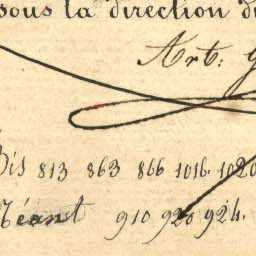 sous la direction d
Art:
Bis 813 863 866 1016. 1020
Néant 910 920 924.